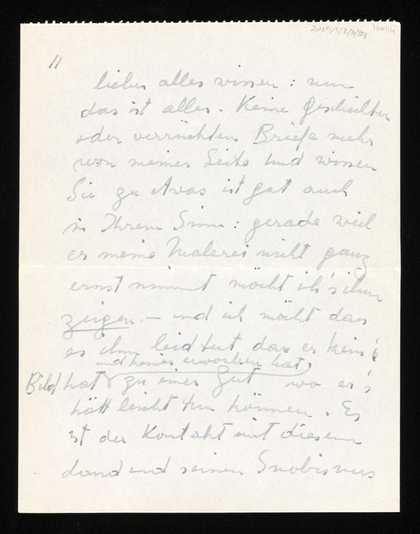 11
lieber alles wissen: nun
das ist alles. Keine gescheilten
oder verrückten Briefe mehr
von meiner Seite und wissen
Sie zu etwas ist gut auch
in Ihrem Sinn: gerade weil
er meine Malerei nicht ganz
ernst nimmt möcht ich's ihm
zeigen – und ich möcht das
es ihm leid tut das er kein's
und keines erworben hat,
Bild hat zu einer Zeit wo er's
hätt leicht tun können. Es
ist der Kontakt mit diesem
land und seinen Snobismus